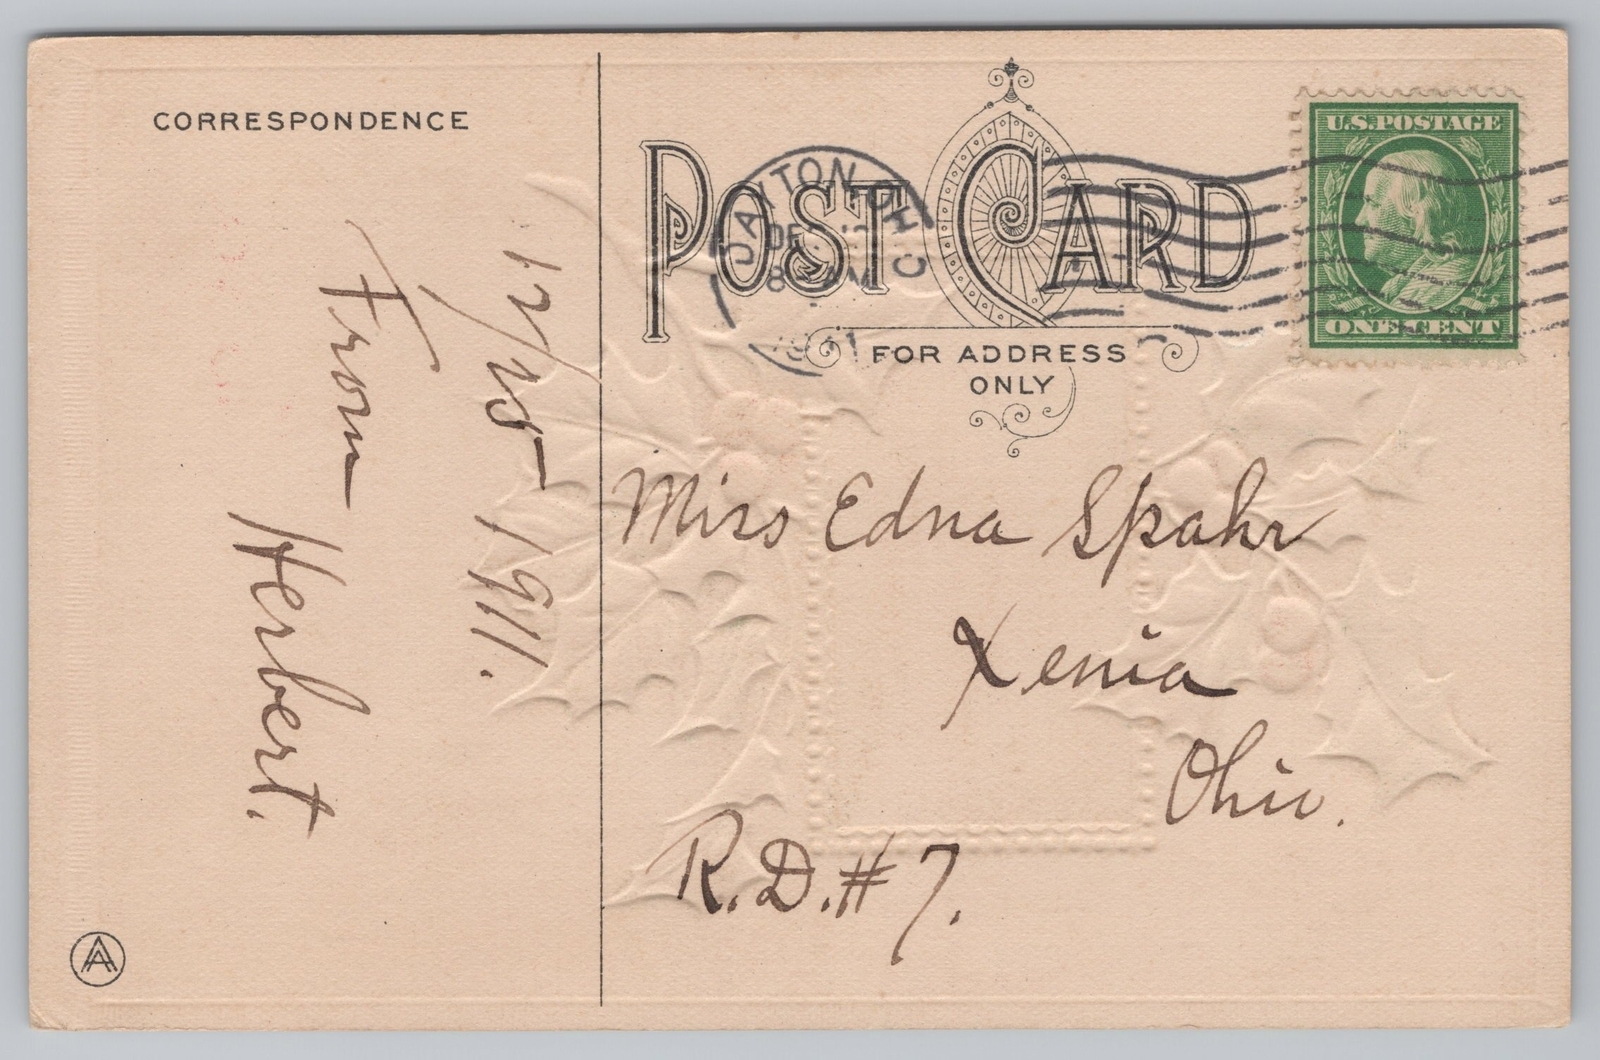 CORRESPONDENCE
12/25 1911.
From
Herbert.
POST CARD
FOR ADDRESS
ONLY
DAYTON OH
8 AM
1911
U.S.POSTAGE
ONE CENT
Miss Edna Spahr
Xenia
Ohio.
R.D.# 7.
AA